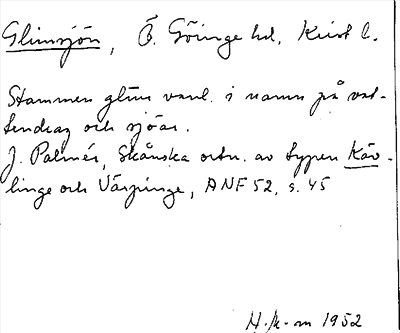 Glimsjön, Ö. Göinge hd. Krist l.
Stammen glim vanl. i namn på vat-
tendrag och sjöar.
J. Palmér, Skånska ortn. av typen Käv-
linge och Värpinge, ANF 52, s. 45
H.K-m 1952